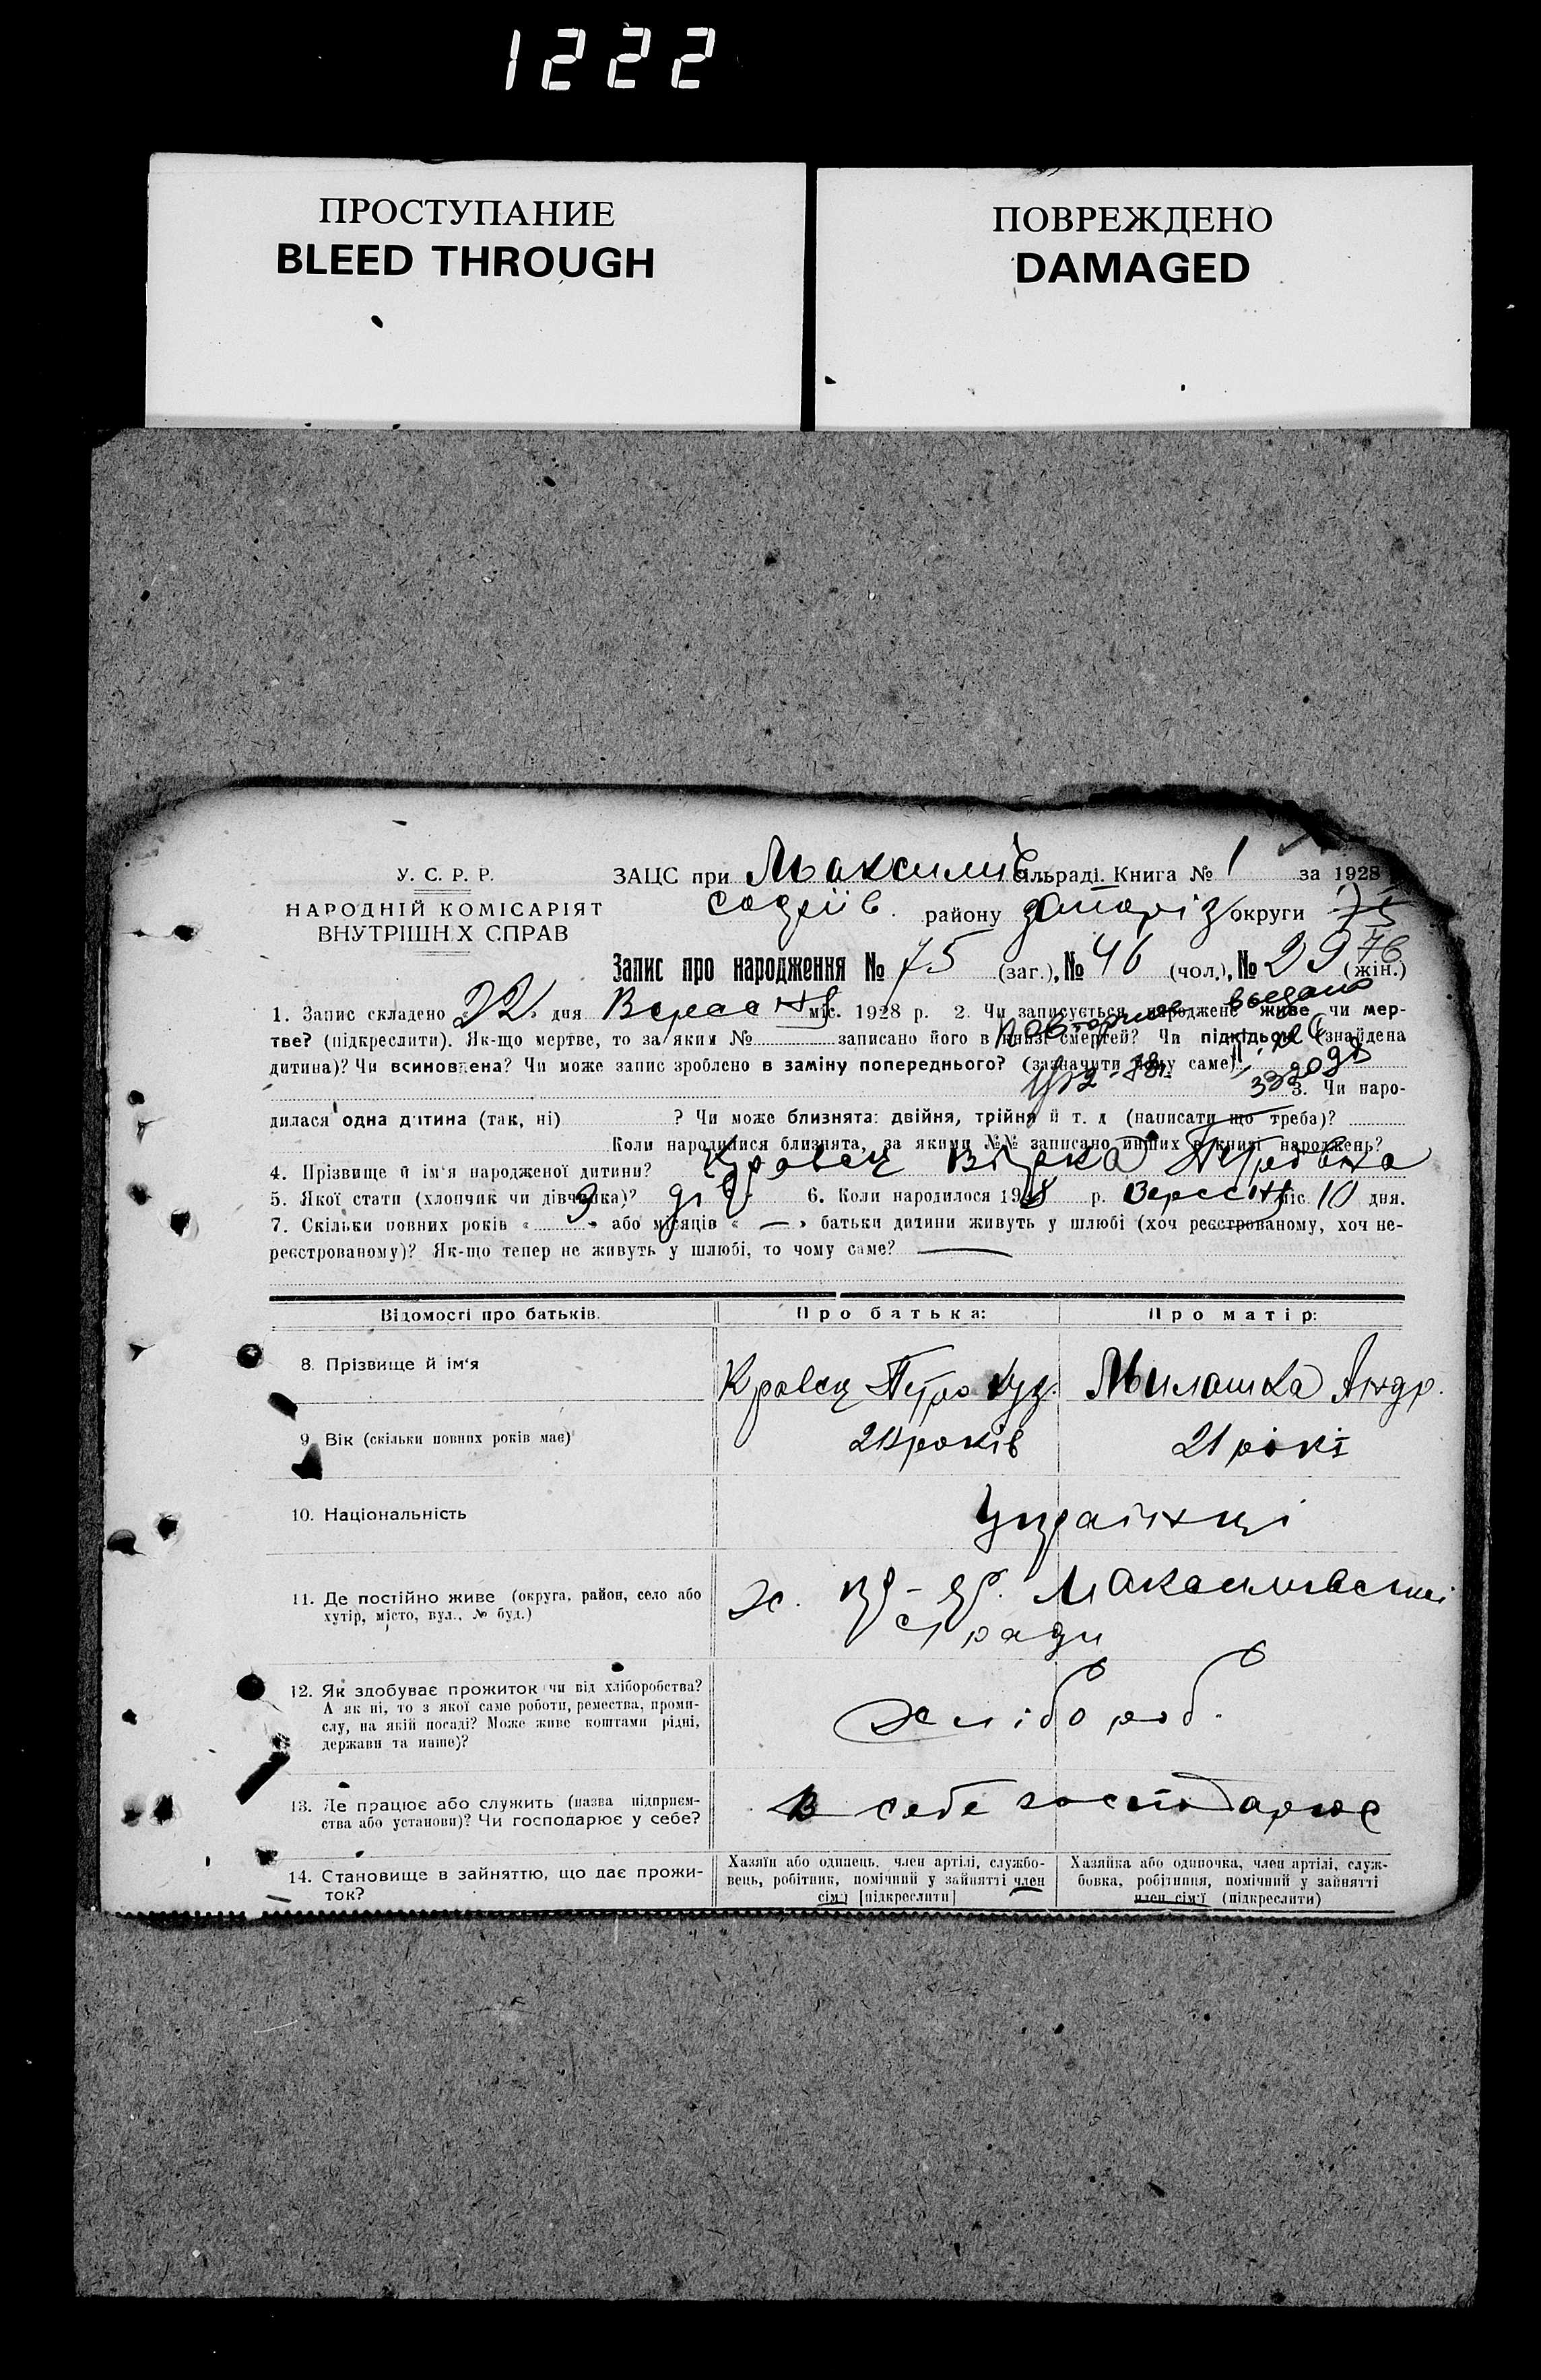 1222
ПРОСТУПАНИЕ
BLEED THROUGH
ПОВРЕЖДЕНО
DAMAGED
У. С. Р. Р.
НАРОДНІЙ КОМІСАРІЯТ
ВНУТРІШН.Х СПРАВ
ЗАЦС при Максимів сільраді. Книга № 1 за 1928
району Запоріз округи
75 76
Запис про народження № 75 (заг.), № 46 (чол.), № 29 (жін.)
1. Запис складено «22» дня Вересня міс. 1928 р. 2. Чи записується народжене живе чи мер-
тве? (підкреслити). Як-що мертве, то за яким № записано його в книзі смертей? Чи підкідьок (знайдена
дитина)? Чи всиновлена? Чи може запис зроблено в заміну попереднього? (зазначити чому саме)
повторное выдано
3. Чи наро-
дилася одна дитина (так, ні) ? Чи може близнята: двійня, трійня й т. д (написати що треба)?
Коли народилися близнята, за якими №№ записано инших в книзі народжень?
4. Прізвище й ім'я народженої дитини? Кравец Вірка Петровна
5. Якої стати (хлопчик чи дівчинка)? дів. 6. Коли народилося 1928 р. Вересня міс. 10 дня.
7. Скільки повних років «3» або місяців « — » батьки дитини живуть у шлюбі (хоч реєстрованому, хоч не-
реєстрованому)? Як-що тепер не живуть у шлюбі, то чому саме? —
Відомості про батьків. Про батька: Про матір:
8. Прізвище й ім'я Кравец Петро Куз. Милашка Андр.
9. Вік (скільки повних років має) років 21 рокі
10. Національність Українці
11. Де постійно живе (округа, район, село або
хутір, місто, вул., № буд.)
х. Максимівської
с/ ради
12. Як здобуває прожиток чи від хліборобства?
А як ні, то з якої саме роботи, ремества, проми-
слу, на якій посаді? Може живе коштами рідні,
держави та инше)?
Хлібороб.
13. Де працює або служить (назва підприєм-
ства або установи)? Чи господарює у себе?
В себе господарює
14. Становище в зайняттю, що дає прожи-
ток?
Хазяїн або одинець, член артілі, службо-
вець, робітник, помічний у зайнятті член
сім'ї [підкреслити]
Хазяйка або одиночка, член артілі, служ-
бовка, робітниця, помічний у зайнятті
член сім'ї (підкреслити)